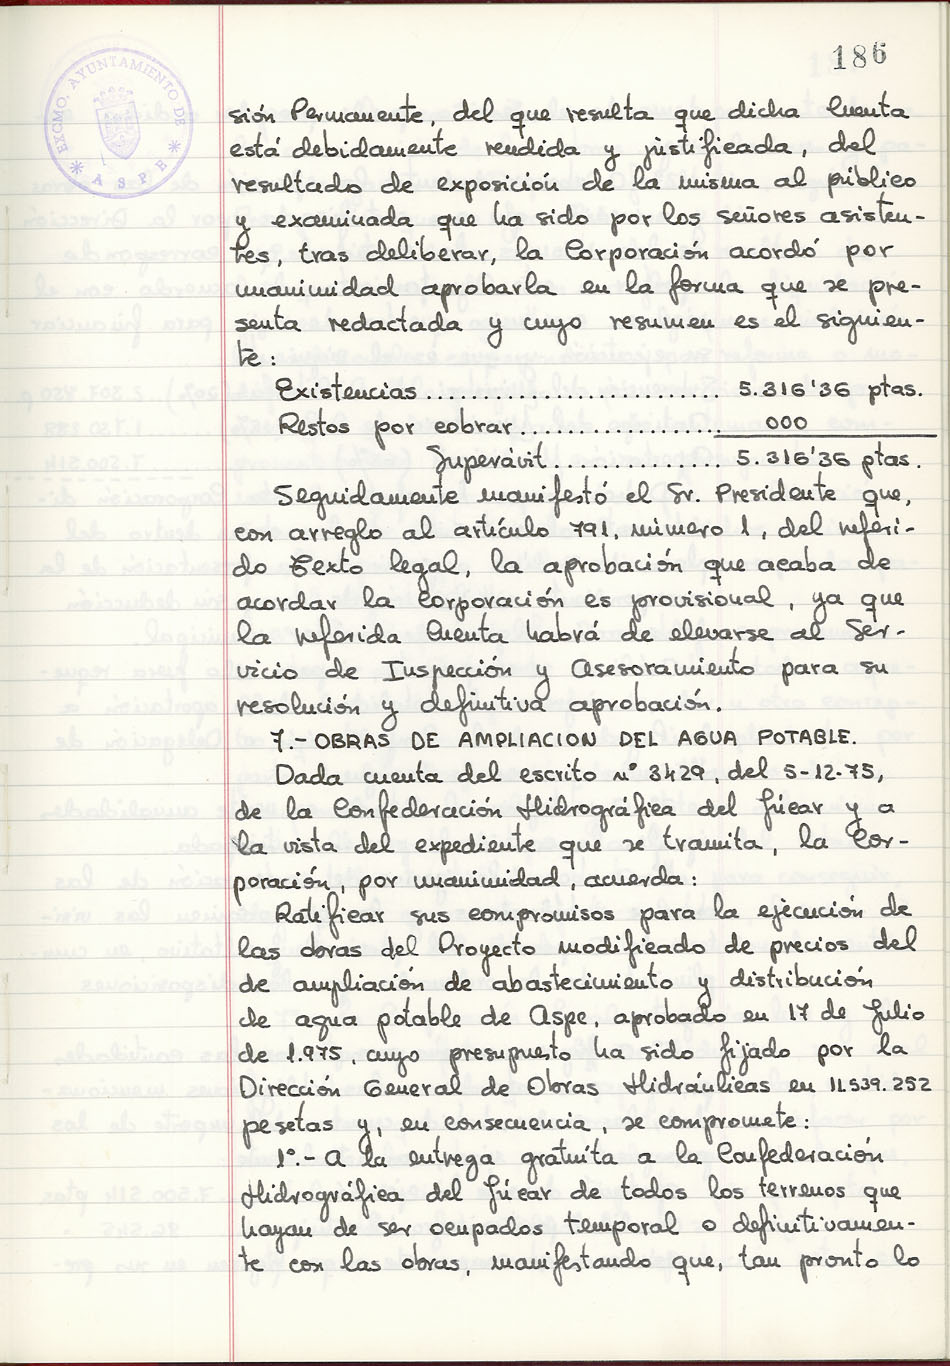 186
EXCMO. AYUNTAMIENTO DE
* ASPE *
sión Permanente, del que resulta que dicha Cuenta
está debidamente rendida y justificada, del
resultado de exposición de la misma al público
y examinada que ha sido por los señores asisten-
tes, tras deliberar, la Corporación acordó por
unanimidad aprobarla en la forma que se pre-
senta redactada y cuyo resumen es el siguien-
te:
Existencias ........................ 5.316'36 ptas.
Restos por cobrar................. 000
Superávit.............. 5.316'36 ptas.
Seguidamente manifestó el Sr. Presidente que,
con arreglo al artículo 791, número 1, del referi-
do Texto legal, la aprobación que acaba de
acordar la Corporación es provisional, ya que
la referida Cuenta habrá de elevarse al Ser-
vicio de Inspección y Asesoramiento para su
resolución y definitiva aprobación.
7.- OBRAS DE AMPLIACION DEL AGUA POTABLE.
Dada cuenta del escrito nº 3429, del 5-12-75,
de la Confederación Hidrográfica del Júcar y a
la vista del expediente que se tramita, la Cor-
poración, por unanimidad, acuerda:
Ratificar sus compromisos para la ejecución de
las obras del Proyecto modificado de precios del
de ampliación de abastecimiento y distribución
de agua potable de Aspe, aprobado en 17 de Julio
de 1.975, cuyo presupuesto ha sido fijado por la
Dirección General de Obras Hidráulicas en 11.539.252
pesetas y, en consecuencia, se compromete:
1º.- A la entrega gratuíta a la Confederación
Hidrográfica del Júcar de todos los terrenos que
hayan de ser ocupados temporal o definitivamen-
te con las obras, manifestando que, tan pronto lo